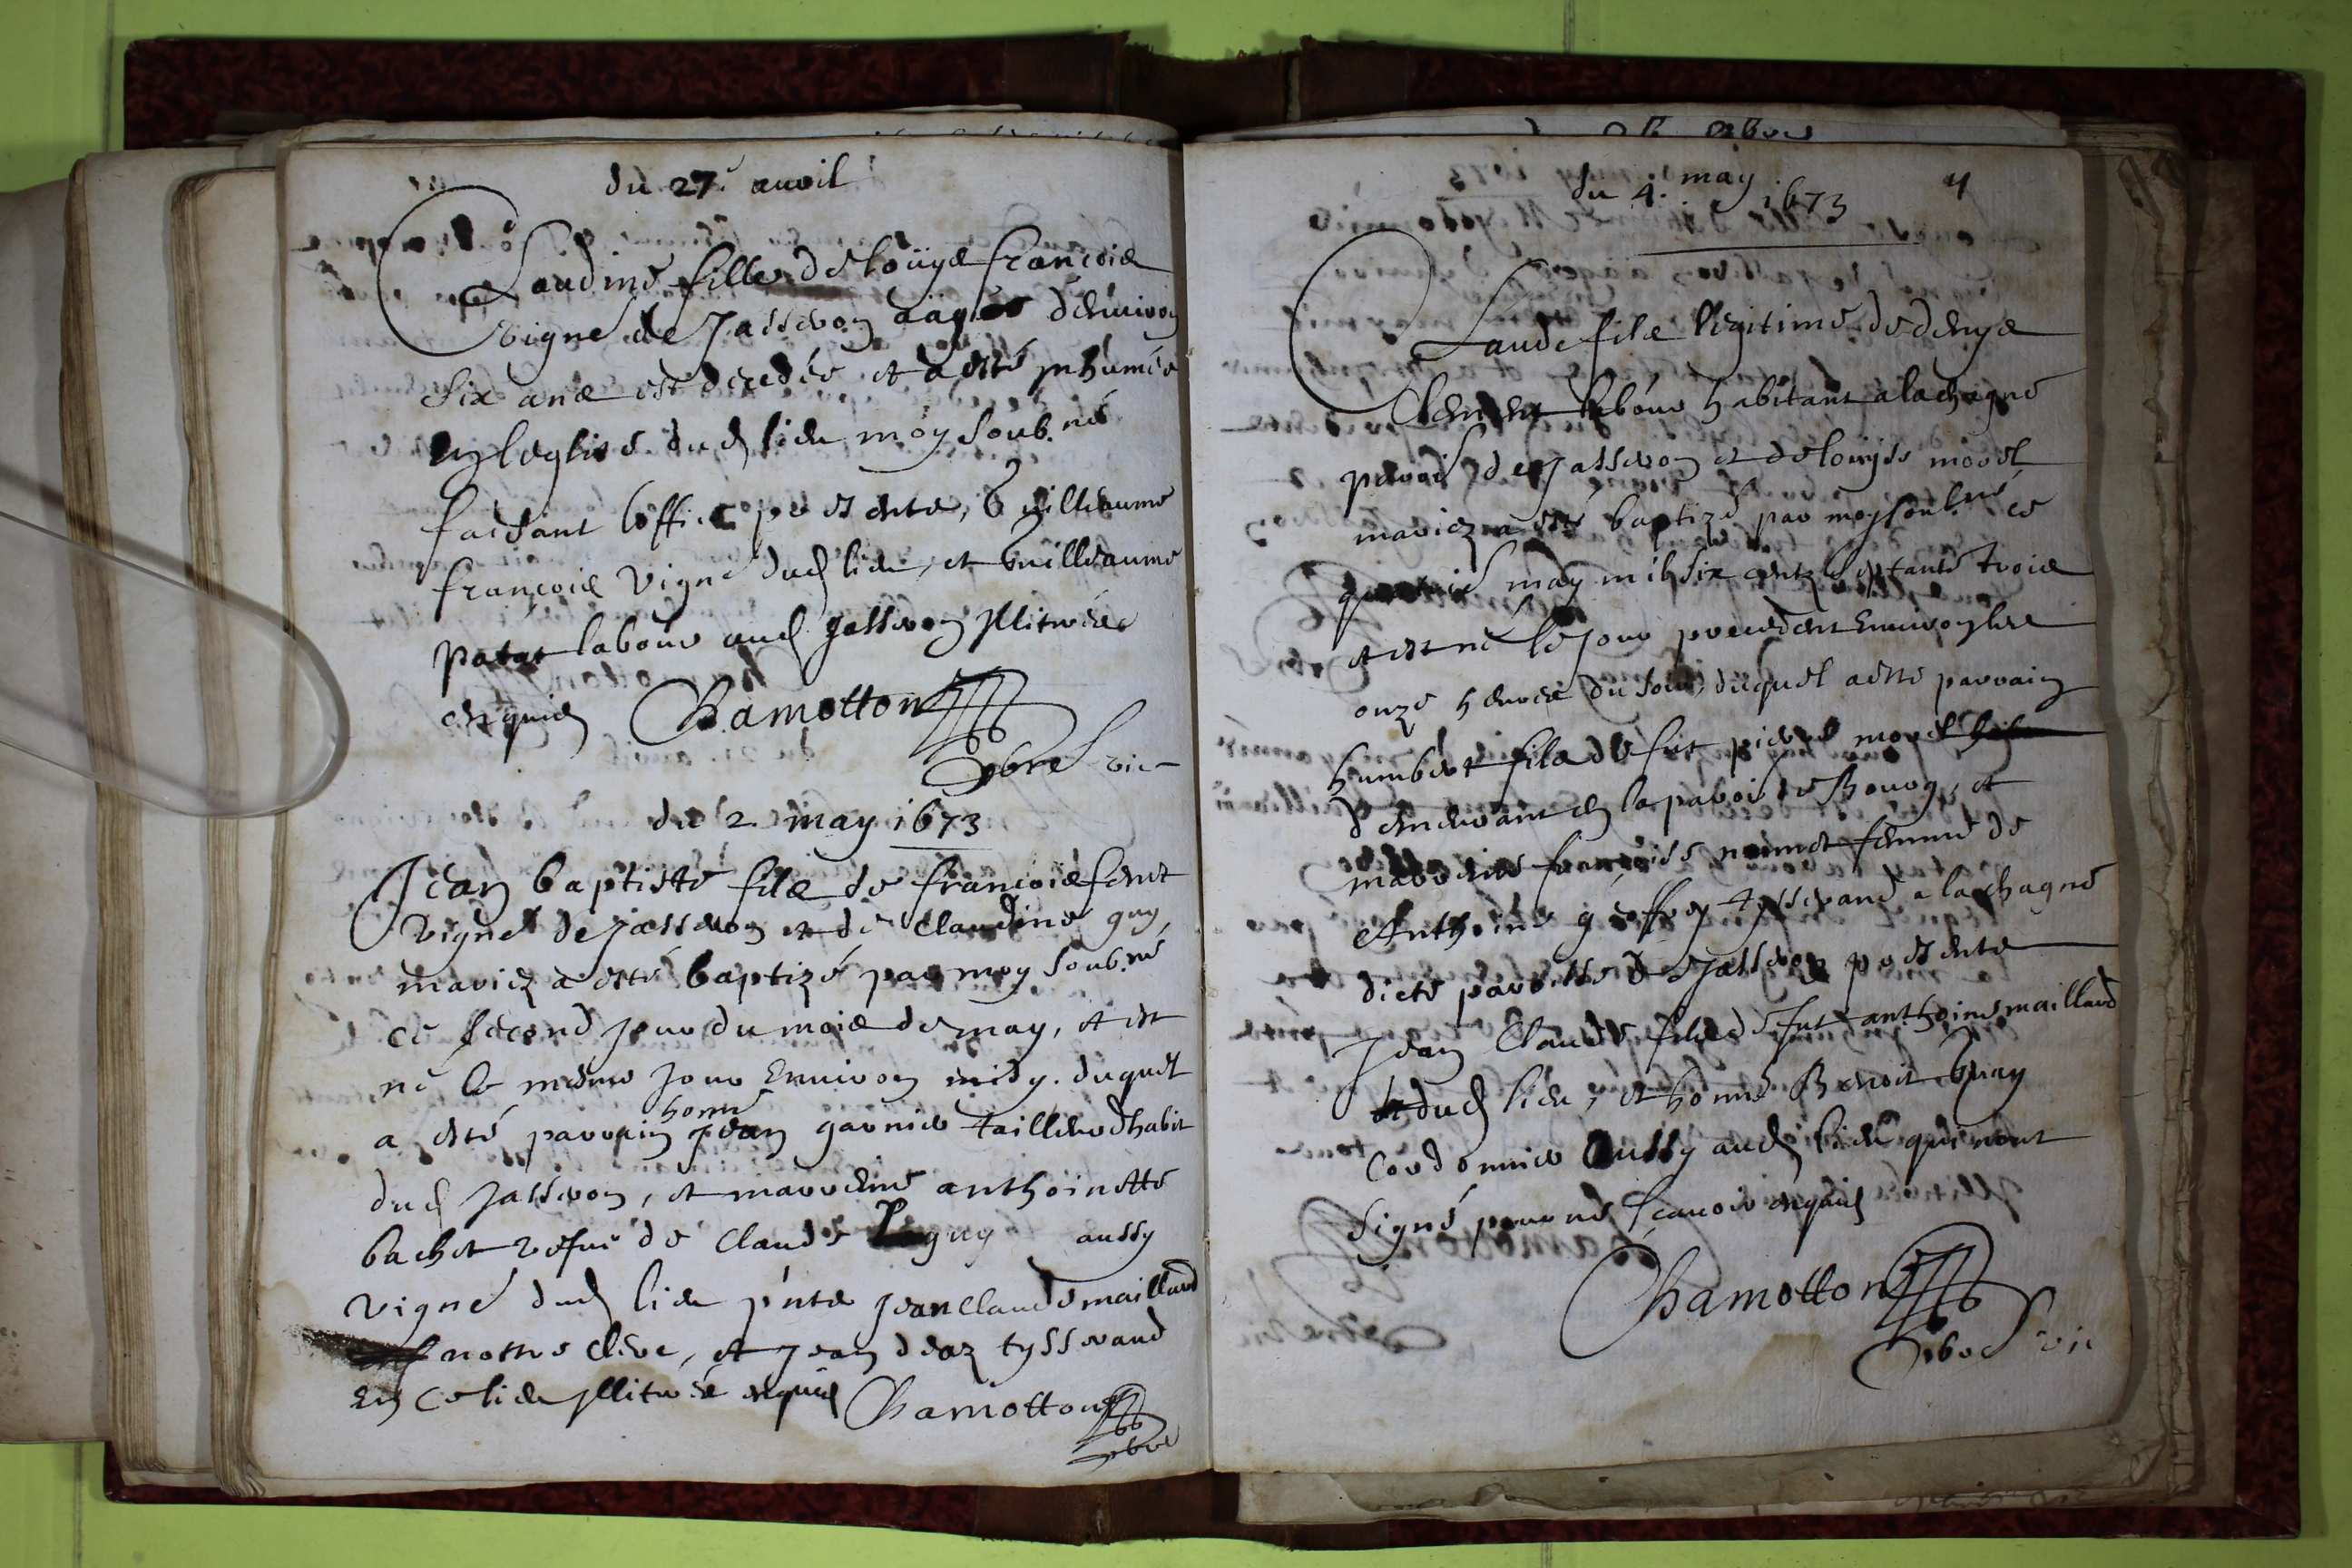 du 27e avril
Claudine fille de louys francois
vigne de Jasseron aagée d'environ
six ans est decedée et a esté inhumée
en leglise dud lieu moy soub.né
faisant loffice presents, Guilleaume
francois vigne dud lieu, et Guilleaume
patat labour aud Jasseron illiterés
enquis Chamotton
pbre vic
du 2 may 1673
Jean baptiste fils de francois feret
vigne de Jasseron et de Claudine guy
mariez a esté baptizé par moy soub.né
ce second jour du mois de may, et est
né le mesme jour environ midy. duquel
honn
a esté parrain Jean garnier tailleur dhabit
dud Jasseron, et marreine anthoinette
bachet vefue de Claude aussy
vigne dud lieu pnts Jean Claude maillard
nostre clerc, et Jean tysserand
en ce lieu illiteré enquis Chamotton
pbre
du 4. may 1673
Claude fils legitime de denys
Clement labour habitant a la chagne
parois de Jasseron et de louyse morel
mariez a esté baptizé par moy soub.né ce
may mil six centz septante trois
et est né le jour precedent environ les
onze heures du soir, duquel a esté parrain
humbert fils de fut pierre morel
demeurant en la parois de Bourg, et
marreine françoise femme de
Anthoine geoffray tysserand a la chagne
dicte paroisse de Jasseron presents
Jean Claude fils de fut anthoine maillard
dud lieu, et honn Benoit
Cordonnier aussy aud lieu qui nont
signé pour ne sçavoir enquis
Chamotton
pbre vic